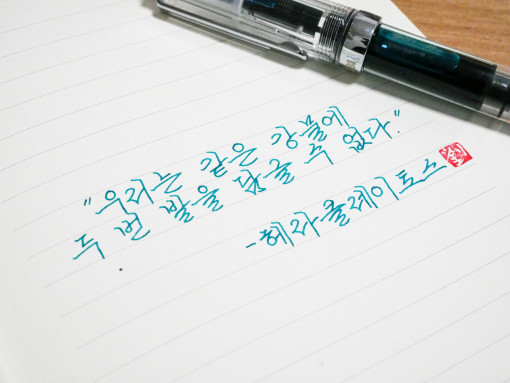 "우리는 같은 강물에
두 번 발을 담글 수 없다."
-헤라클레이토스
劉